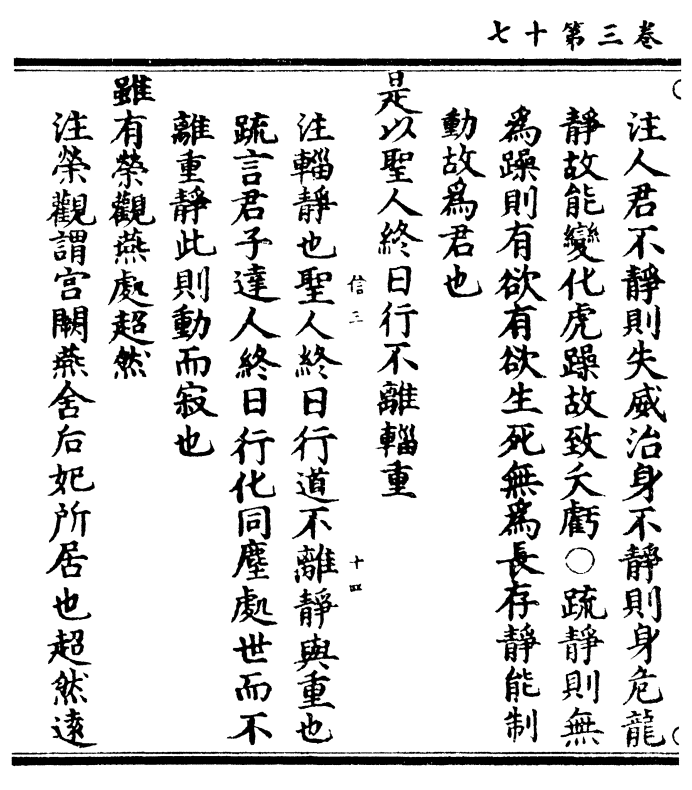 卷三第十七
注人君不靜則失威治身不靜則身危龍
靜故能變化虎躁故致夭虧○疏靜則無
爲躁則有欲有欲生死無爲長存靜能制
動故爲君也
是以聖人終日行不離輜重
信三
十四
注輜靜也聖人終日行道不離靜與重也
疏言君子達人終日行化同塵處世而不
離重靜此則動而寂也
雖有榮觀燕處超然
注榮觀謂宮闕燕舍后妃所居也超然遠